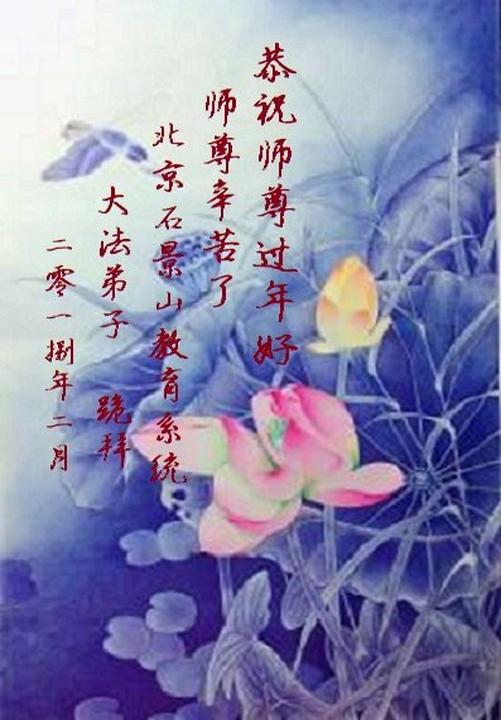 恭祝师尊过年好
师尊辛苦了
北京石景山教育系统
大法弟子 跪拜
二零一捌年二月